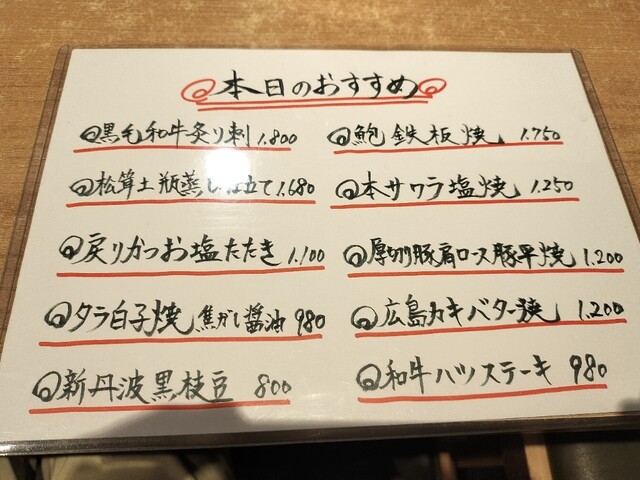 本日のおすすめ
黒毛和牛炙り刺 1.800
松茸土瓶蒸し仕立て 1.680
戻りかつお塩たたき 1.100
タラ白子焼 焦がし醤油 980
新丹波黒枝豆 800
鮑鉄板焼 1.750
本サワラ塩焼 1.250
厚切豚肩ロース豚平焼 1.200
広島カキバター焼 1.200
和牛ハツステーキ 980